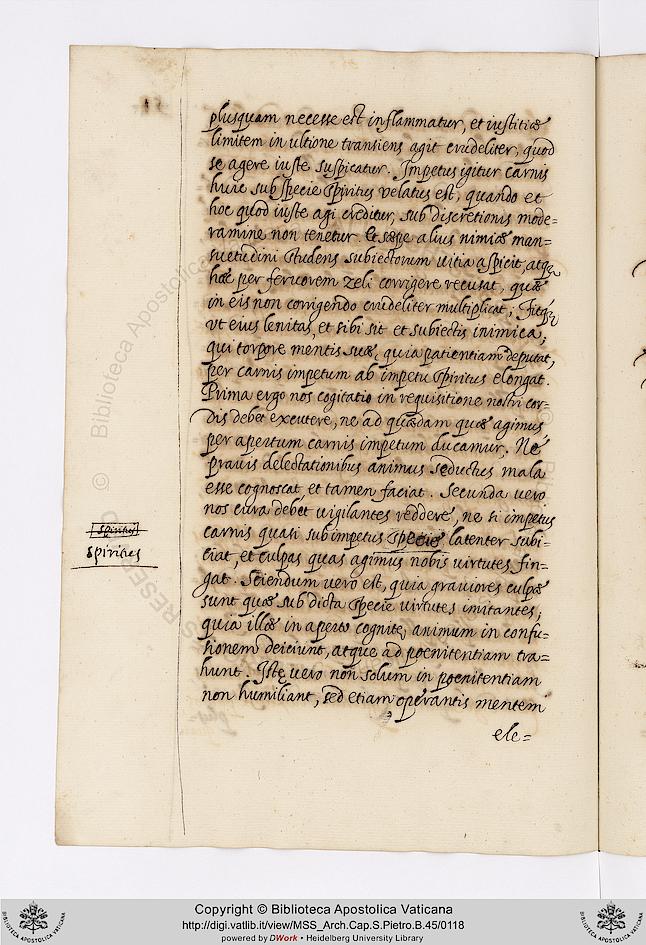 plusquam necesse est inflammatur, et iustitiæ
limitem in ultione transiens agit crudeliter, quod
se agere iuste suspicatur. Impetus igitur carnis
huic sub specie Spiritus velatus est, quando et
hoc quod iuste agi creditur, sub discretionis mode=
ramine non tenetur. Et sæpe alius nimiæ man=
suetudini studens subiectorum uitia aspicit, atq3
hæc per feruorem zeli corrigere recusat, quæ
in eis non corrigendo crudeliter multiplicat; Fitq3
vt eius lenitas, et sibi sit et subiectis inimica;
qui torpore mentis suæ, quia patientiam deputat,
per carnis impetum ab impetu Spiritus elongat.
Prima ergo nos cogitatio in requisitione nostri cor=
dis debet excutere, ne ad quædam quæ agimus
per apertum carnis impetum ducamur. Nè
prauis delectationibus animus seductus mala
esse cognoscat, et tamen faciat. Secunda vero
nos cura debet vigilantes reddere, ne si impetus
carnis quasi sub impetus specie latenter subi=
ciat, et culpas quas agimus nobis virtutes fin=
gat. Sciendum vero est, quia grauiores culpæ
sunt quæ sub dicta specie virtutes imitantes,
quia illæ in aperto cognitę, animum in confu=
sionem deiciunt, atque ad poenitentiam tra=
hunt. Istę vero non solum in poenitentiam
non humiliant, sed etiam operantis mentem
ele=
spiritus
spiritus
© Biblioteca Apostolica Vaticana
Copyright © Biblioteca Apostolica Vaticana
http://digi.vatlib.it/view/MSS_Arch.Cap.S.Pietro.B.45/0118
powered by DWork • Heidelberg University Library